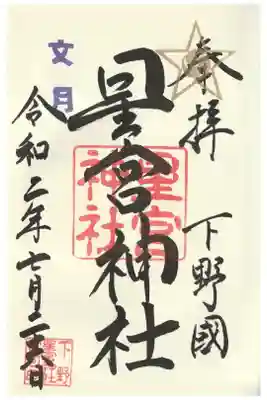 奉拝
下野國
星宮神社
星宮
神社
文月
令和二年七月二六日
下野